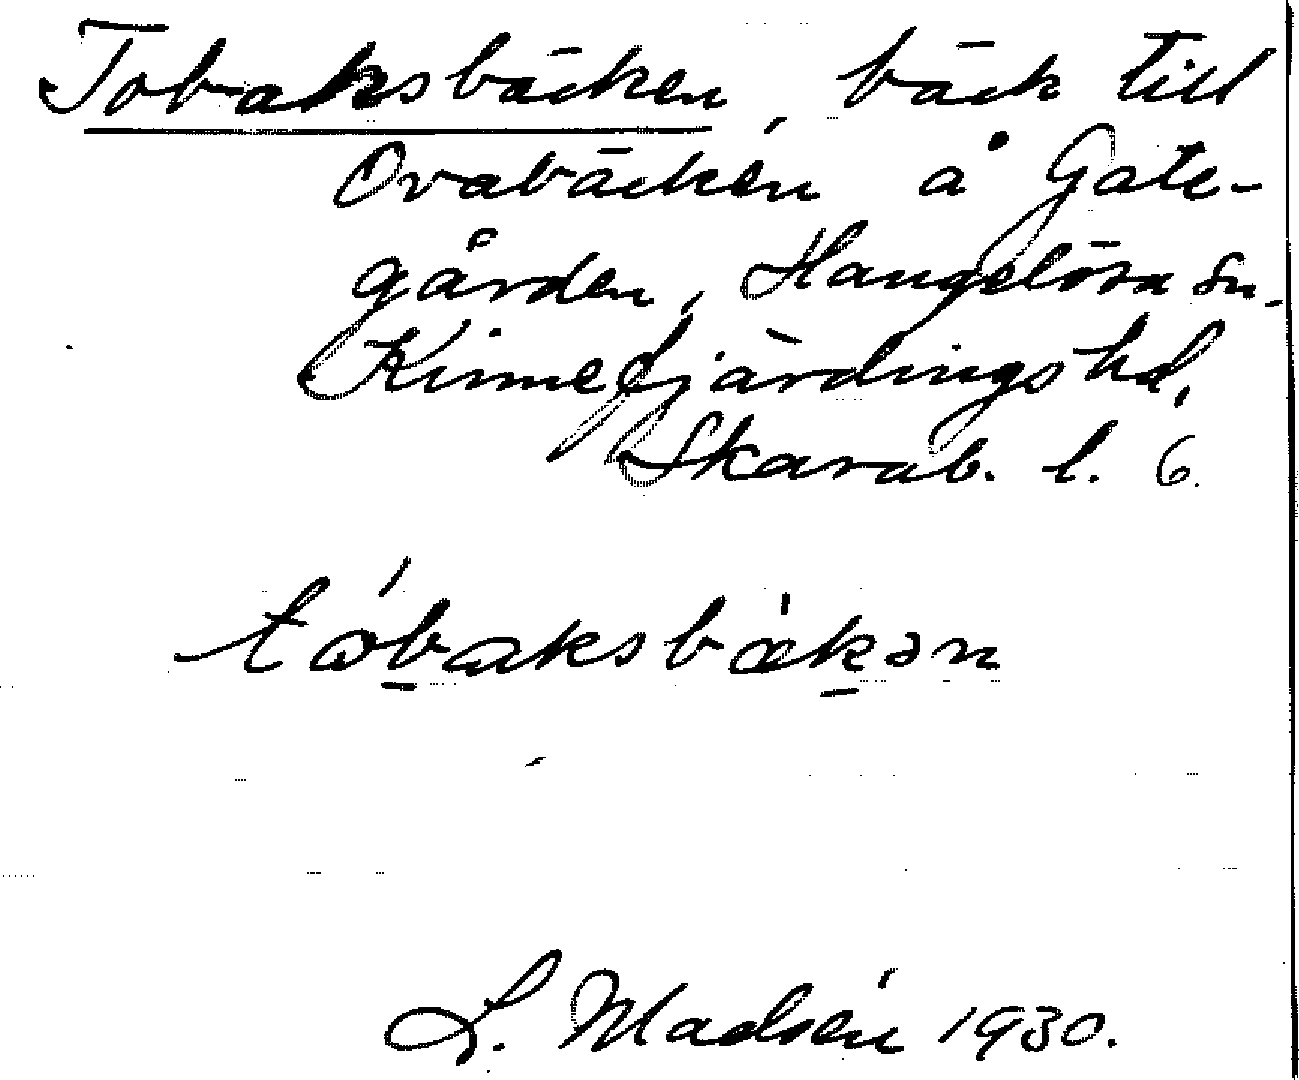 Tobaksbäcken, bäck till
Ovabäcken å Gate-
gården, Hangelösa sn.
Kinnefjärdings hd,
Skarab. l. 6.
tobaksbækən
L. Madsén 1930.